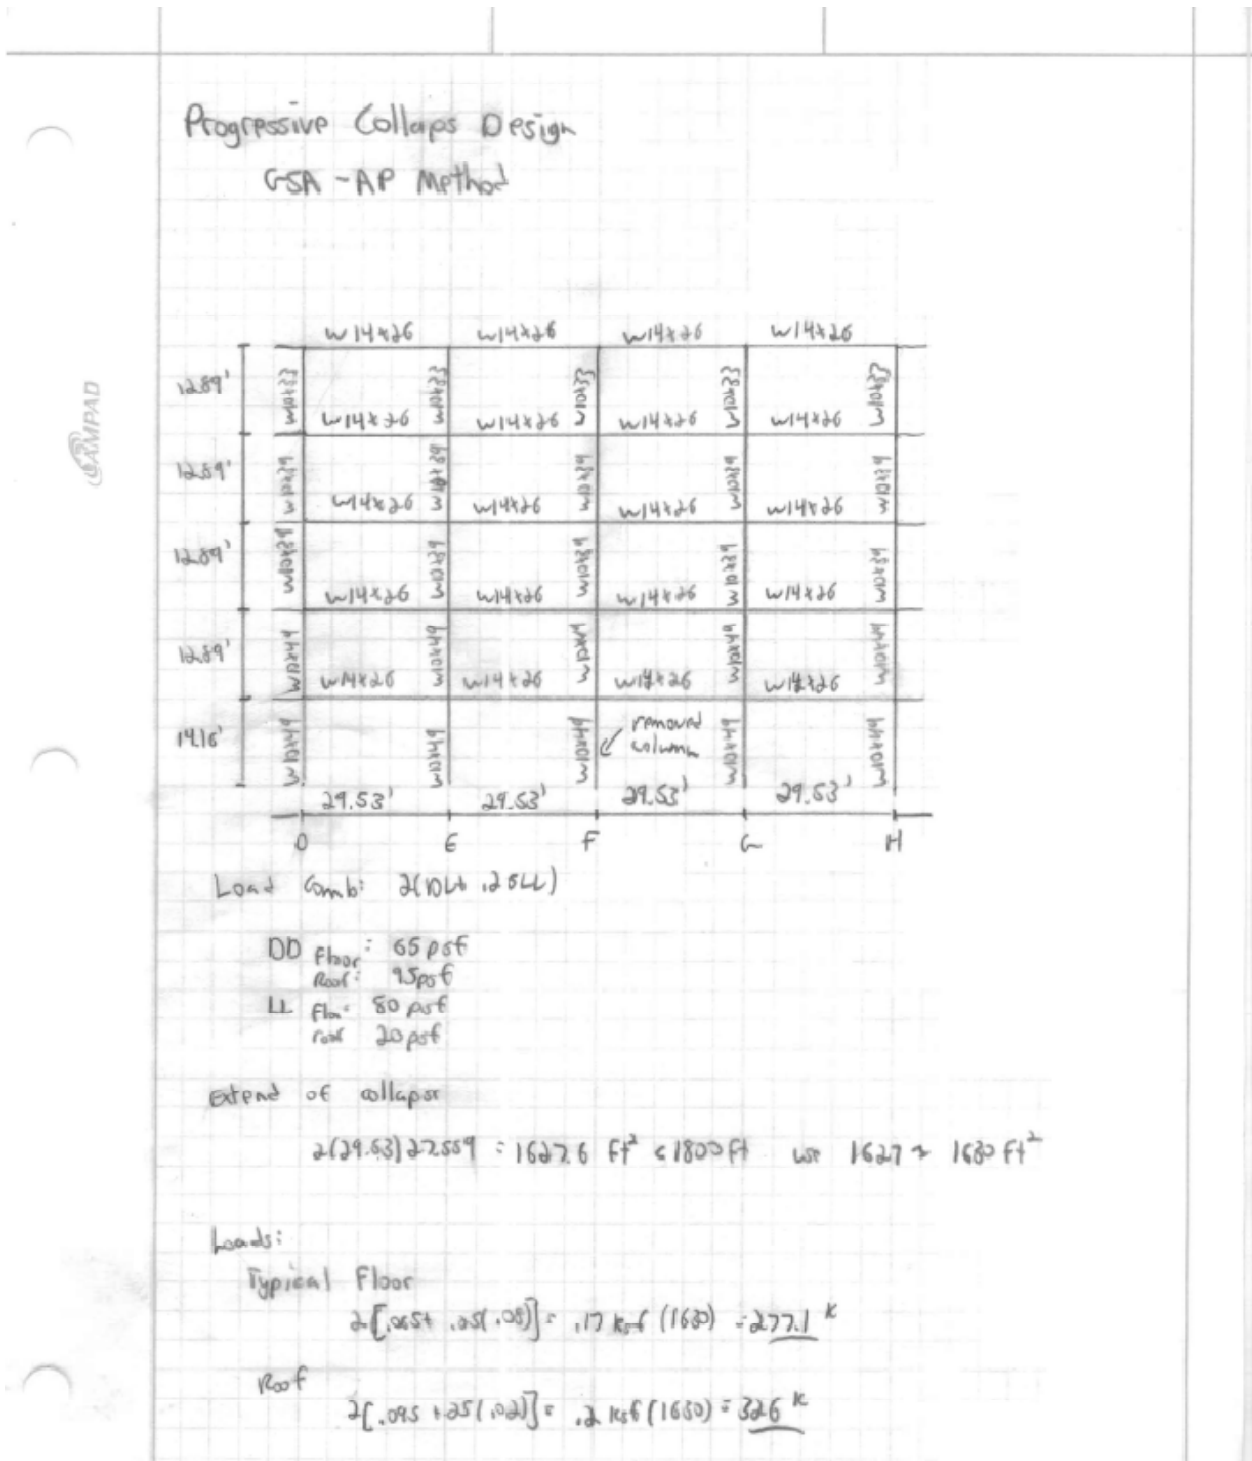 Progressive Collaps Design
GSA - AP Method
AMPAD
W14x26 W14x26 W14x26 W14x26
12.89' W10x33 W10x33 W10x33 W10x33 W10x33
W14x26 W14x26 W14x26 W14x26
12.89' W10x39 W10x39 W10x39 W10x39 W10x39
W14x26 W14x26 W14x26 W14x26
12.89' W10x39 W10x39 W10x39 W10x39 W10x39
W14x26 W14x26 W14x26 W14x26
12.89' W10x49 W10x49 W10x49 W10x49 W10x49
W14x26 W14x26 W14x26 W14x26
14.16' W10x49 W10x49 W10x49 removed column W10x49 W10x49
29.53' 29.53' 29.53' 29.53'
D E F G H
Load Comb: 2(DL+ .25LL)
DD Floor: 65 psf
Roof: 95psf
LL Floor: 80 psf
roof 20 psf
Extend of collapse
2(29.53)27.559 = 1627.6 ft² ≤ 1800 ft use 1627 ≈ 1630 ft²
Loads:
Typical Floor
2[.065+ .25(.08)] = .17 ksf (1630) = 277.1 k
Roof
2[.095 +.25(.02)] = .2 ksf (1630) = 326 k